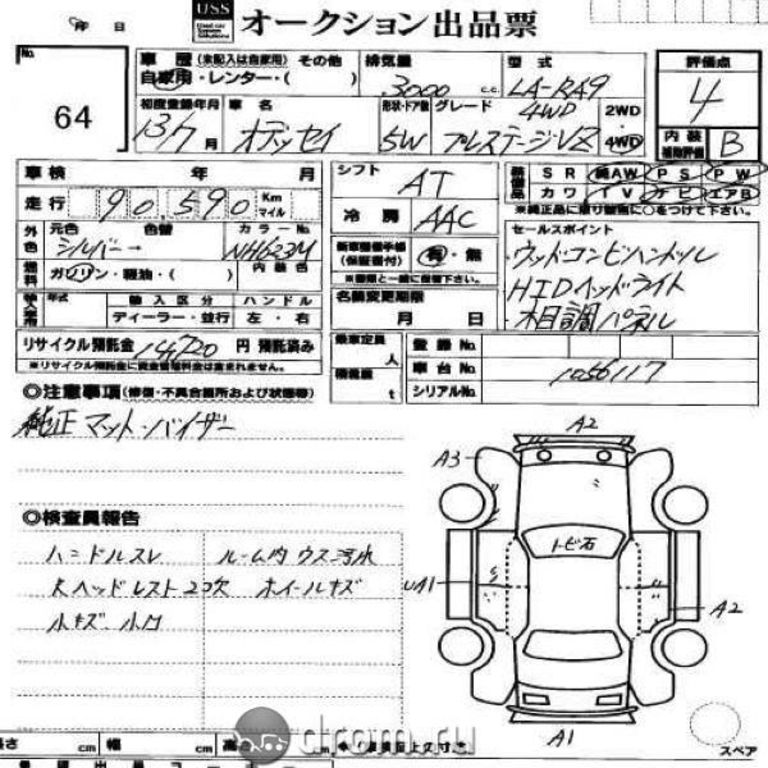 USS オークション出品票
年 日
No.
64
車歴 (未記入は自家用) その他
自家用・レンター・( )
排気量
3000 c.c.
型式
LA-RA9
評価点
4
初度登録年月
13/7月
車名
オデッセイ
形状・ドア数
5W
グレード
4WD
プレステージVZ
2WD
・
4WD
内装
補助評価
B
車検 年 月
走行 90,590 Km
マイル
シフト
AT
冷房
AAC
装備品
SR 純AW PS PW
カワ TV ナビ エアB
※純正品に限り装備に○をつけて下さい。
外色
元色 色替 カラーNo.
シルバー → NH623M
燃料
ガソリン・軽油・( )
内装色
新車整備手帳
(保証書付)
有・無
※書類と一緒に保管下さい。
セールスポイント
・ウッドコンビハンドル
・HIDヘッドライト
・木目調パネル
年式 輸入区分 ハンドル
ディーラー・並行 左・右
名義変更期限
月 日
リサイクル預託金 14720 円 預託済み
※リサイクル預託金に資金管理料金は含まれません。
乗車定員
人
積載量
t
登録No.
車台No. 1056117
シリアルNo.
◎注意事項(修復・不具合箇所および状態等)
純正マット・バイザー
◎検査員報告
ハンドルスレ ルーム内ウス汚れ
ヘッドレスト2コ欠 ホイールキズ
小キズ、小凹
A2
A3
トビ石
UA1
A2
A1
スペア
長さ cm 幅 cm 高さ
drom.ru